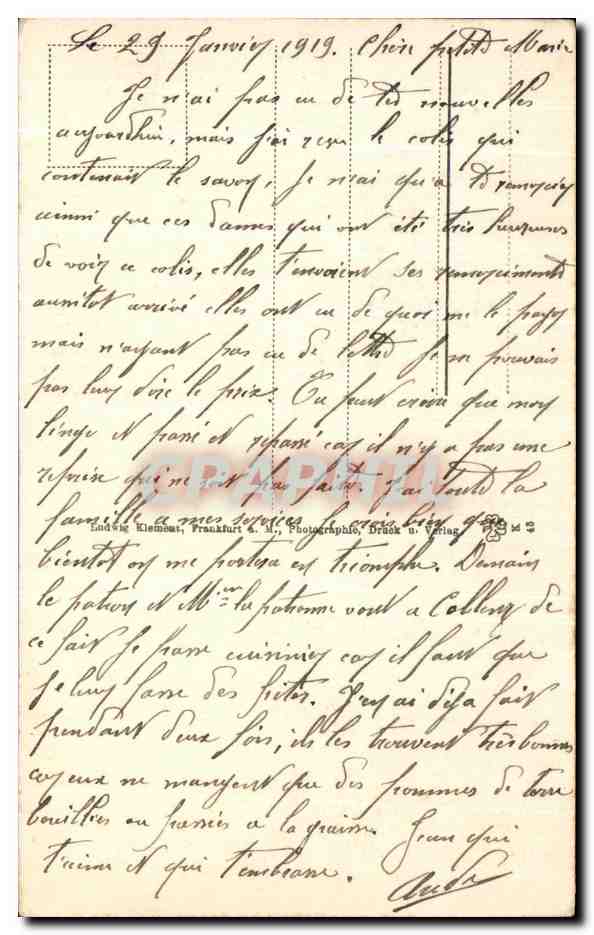 Le 29 Janvier 1919. Chère petite Marie
Je n'ai pas eu de tes nouvelles
aujourdhui, mais j'ai reçu le colis qui
contenait le savon, Je n'ai qu'a te remercier
ainsi que ces dames qui ont été très heureuses
de voir ce colis, elles t'envoient ses remerciments
aussitot arrivé elles ont eu de quoi me le payer
mais n'ayant pas eu de lettre Je ne pouvais
pas leur dire le prix. Tu peut croire que mon
linge et passé et repassé car il n'y a pas une
reprise qui ne soit pas faite. J'ai toute la
famille a mes services Je crois bien que
Ludwig Klement, Frankfurt a. M., Photographie, Druck u. Verlag.
K 45
bientot on me portera en triomphe. Demain
le patron et Mme la patronne vont a Coblenz de
ce fait Je passe cuisinier car il faut que
Je leur fasse des frites. J'en ai déja fait
pendant deux fois, ils les trouvent très bonnes
car eux ne mangent que des pommes de terre
bouillies ou passées a la graisse. Jean qui
t'aime et qui t'embrasse.
CPAPHIL